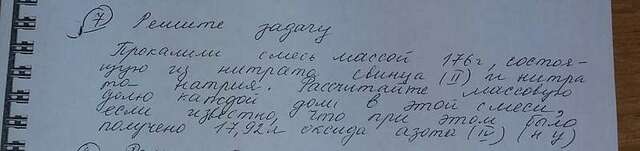 7 Решите задачу
Прокалили смесь массой 176г, состоя-
щую из нитрата свинца (II) и нитра
та натрия. Рассчитайте массовую
долю каждой доли в этой смеси,
если известно, что при этом было
получено 17,92л оксида азота (IV) (н у)